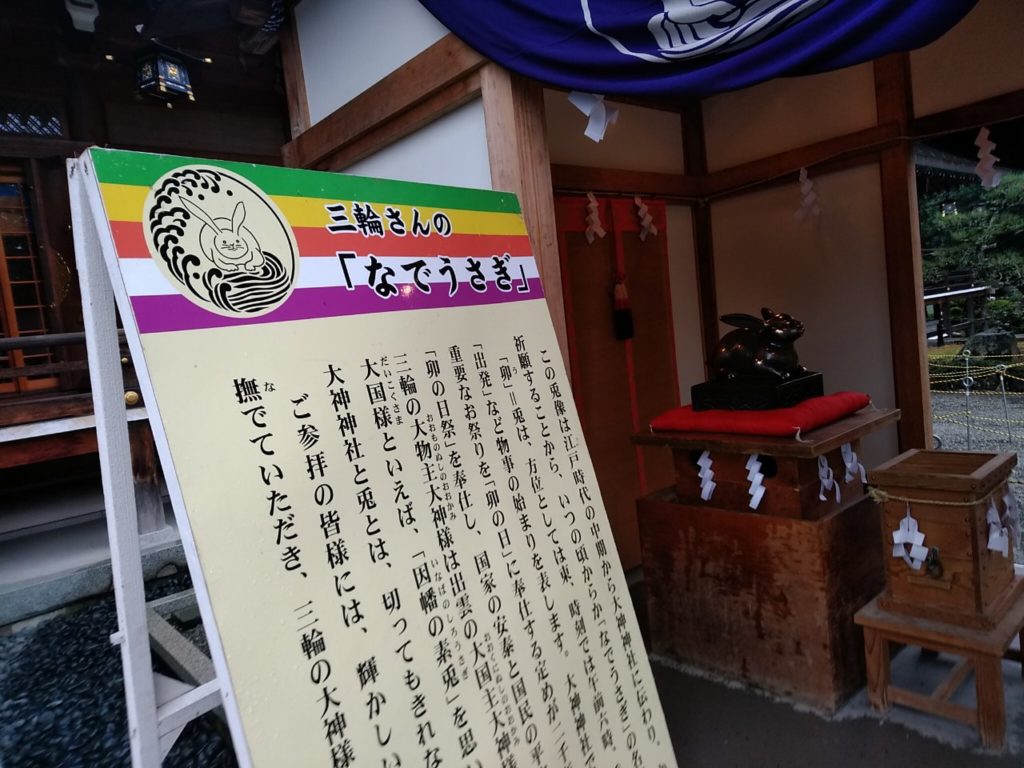 三輪さんの
「なでうさぎ」
この兎像は江戸時代の中期から大神神社に伝わり、
祈願することから、いつの頃からか「なでうさぎ」の名
「卯」＝兎は、方位としては東、時刻では午前六時、
「出発」など物事の始まりを表します。大神神社で
重要なお祭りを「卯の日」に奉仕する定めが二千
「卯の日祭」を奉仕し、国家の安泰と国民の平
三輪の大物主大神様は出雲の大国主大神様
大国様といえば、「因幡の素兎」を思い
大神神社と兎とは、切ってもきれな
ご参拝の皆様には、輝かしい
撫でていただき、三輪の大神様